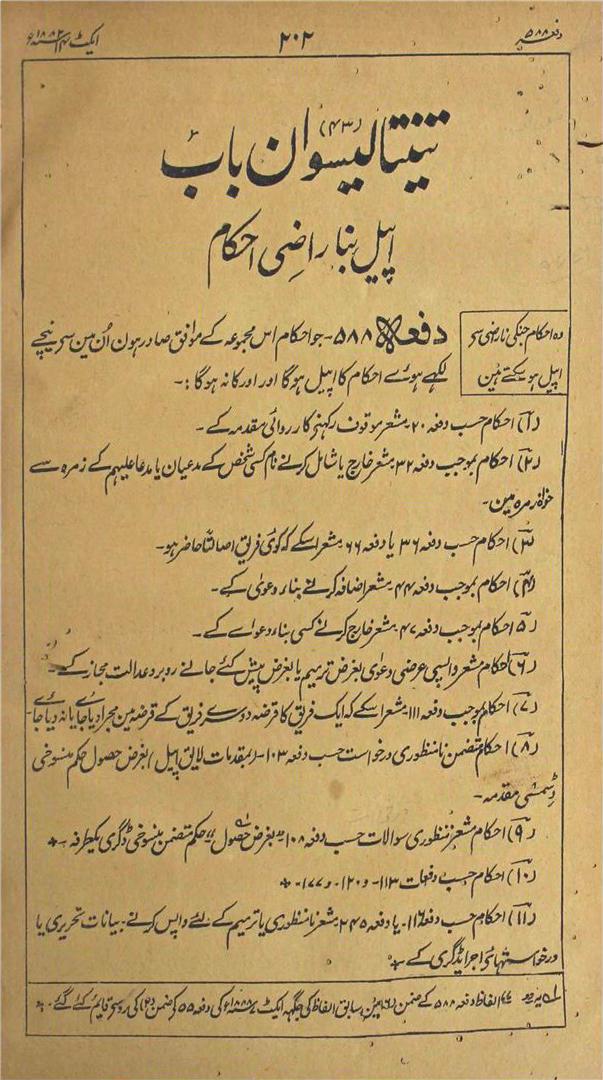 دفعہ ۵۸۸
۲۰۲
ایکٹ ۱۴ ۱۸۸۲ء
تینتالیسوان باب
(۴۳)
اپیل بناراضی احکام
وہ احکام جنکی ناراضی سے
اپیل ہو سکتے ہین
دفعہ ۵۸۸ - جو احکام اس مجموعہ کے موافق صادر ہون اُن مین سے نیچے
لکھے ہوے احکام کا اپیل ہوگا اور اور کا نہ ہوگا :-
(۱) احکام حسب دفعہ ۲۰ - مشعر موقوف رکھنے کارروائی مقدمہ کے -
(۲) احکام بموجب دفعہ ۳۲ مشعر خارج یا شامل کرنے نام کسی شخص کے مدعیان یا مدعا علیہم کے زمرہ سے
خواہ زمرہ مین -
(۳) احکام حسب دفعہ ۳۶ یا دفعہ ۶۶ مشعر اسکے کہ کوئی فریق اصالتاً حاضر ہو -
(۴) احکام بموجب دفعہ ۴۴ مشعر اضافہ کرنے بناء دعویٰ کے -
(۵) احکام بموجب دفعہ ۴۷ مشعر خارج کرنے کسی بناء دعواے کے -
(۶) احکام مشعر واپسی عرضی دعویٰ بغرض ترمیم یا بغرض پیش کئے جانے روبرو عدالت مجاز کے -
(۷) احکام بموجب دفعہ ۱۱۱ مشعر اسکے کہ ایک فریق کا قرضہ دوسرے فریق کے قرضہ مین مجرا دیا جاے یا نہ دیا جاے -
(۸) احکام متضمن نامنظوری درخواست حسب دفعہ ۱۰۳ - (بمقدمات لایق اپیل) بغرض حصول حکم منسوخی
ڈسمسی مقدمہ -
(۹) احکام مشعر نامنظوری سوالات حسب دفعہ ۱۰۸ بغرض حصول حکم متضمن منسوخی ڈگری یکطرفہ - *
(۱۰) احکام حسب دفعات ۱۱۳ - و ۱۲۰ - و ۱۷۷ - *
(۱۱) احکام حسب دفعہ ۱۱۶ - یا دفعہ ۲۴۵ مشعر نامنظوری یا ترمیم کے لئے واپس کرنے بیانات تحریری یا
درخواستہای اجرا ڈگری کے - *
الفاظ دفعہ ۵۸۸ کے ضمن مین سابق الفاظ کی جگہہ ایکٹ ۱۸۸۸ء کی دفعہ ۵۵ کی ضمن کی رو سے قایم کئے گئے - *